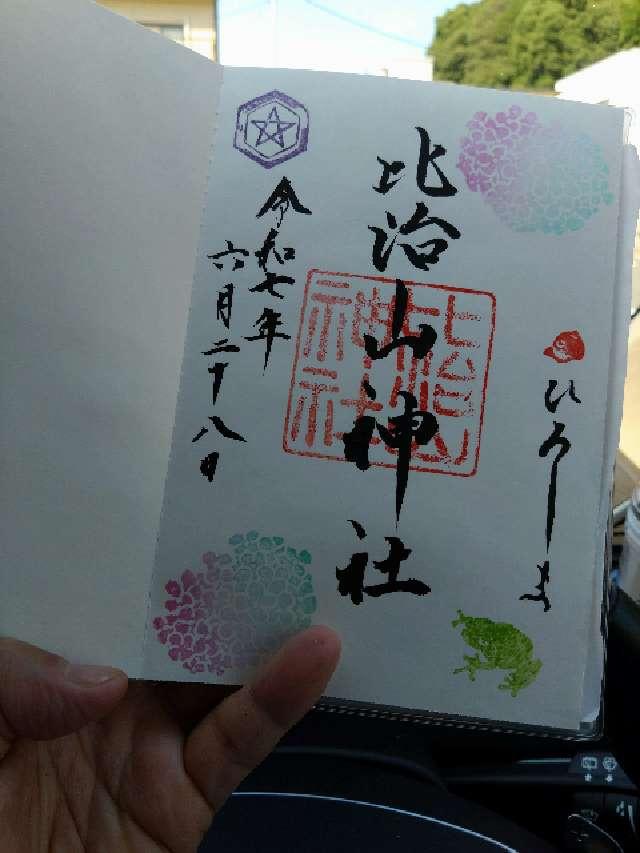 ひろしま
比治山神社
比治山神社
令和七年
六月二十八日